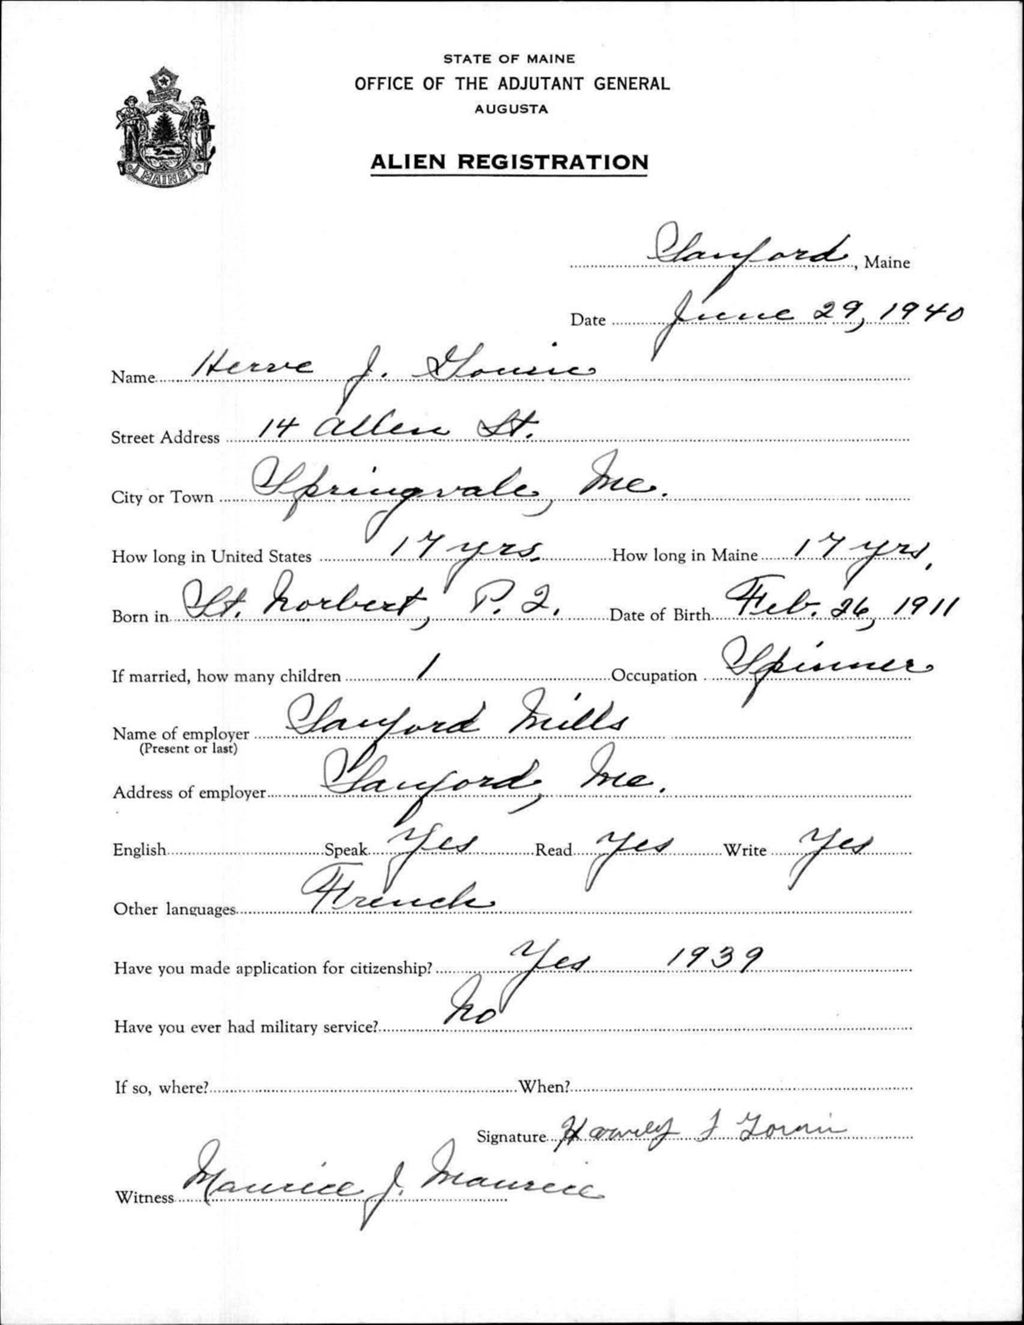 STATE OF MAINE
OFFICE OF THE ADJUTANT GENERAL
AUGUSTA
MAINE
ALIEN REGISTRATION
Sanford, Maine
Date June 29, 1940
Name Herve J. Gousie
Street Address 14 Allen St.
City or Town Springvale, Me.
How long in United States 17 yrs. How long in Maine 17 yrs.
Born in St. Norbert, P. Q. Date of Birth Feb. 26, 1911
If married, how many children 1 Occupation Spinner
Name of employer Sanford Mills
(Present or last)
Address of employer Sanford, Me.
English Speak Yes Read Yes Write Yes
Other languages French
Have you made application for citizenship? Yes 1939
Have you ever had military service? No
If so, where? When?
Signature J
Witness Maurice J. Maurice